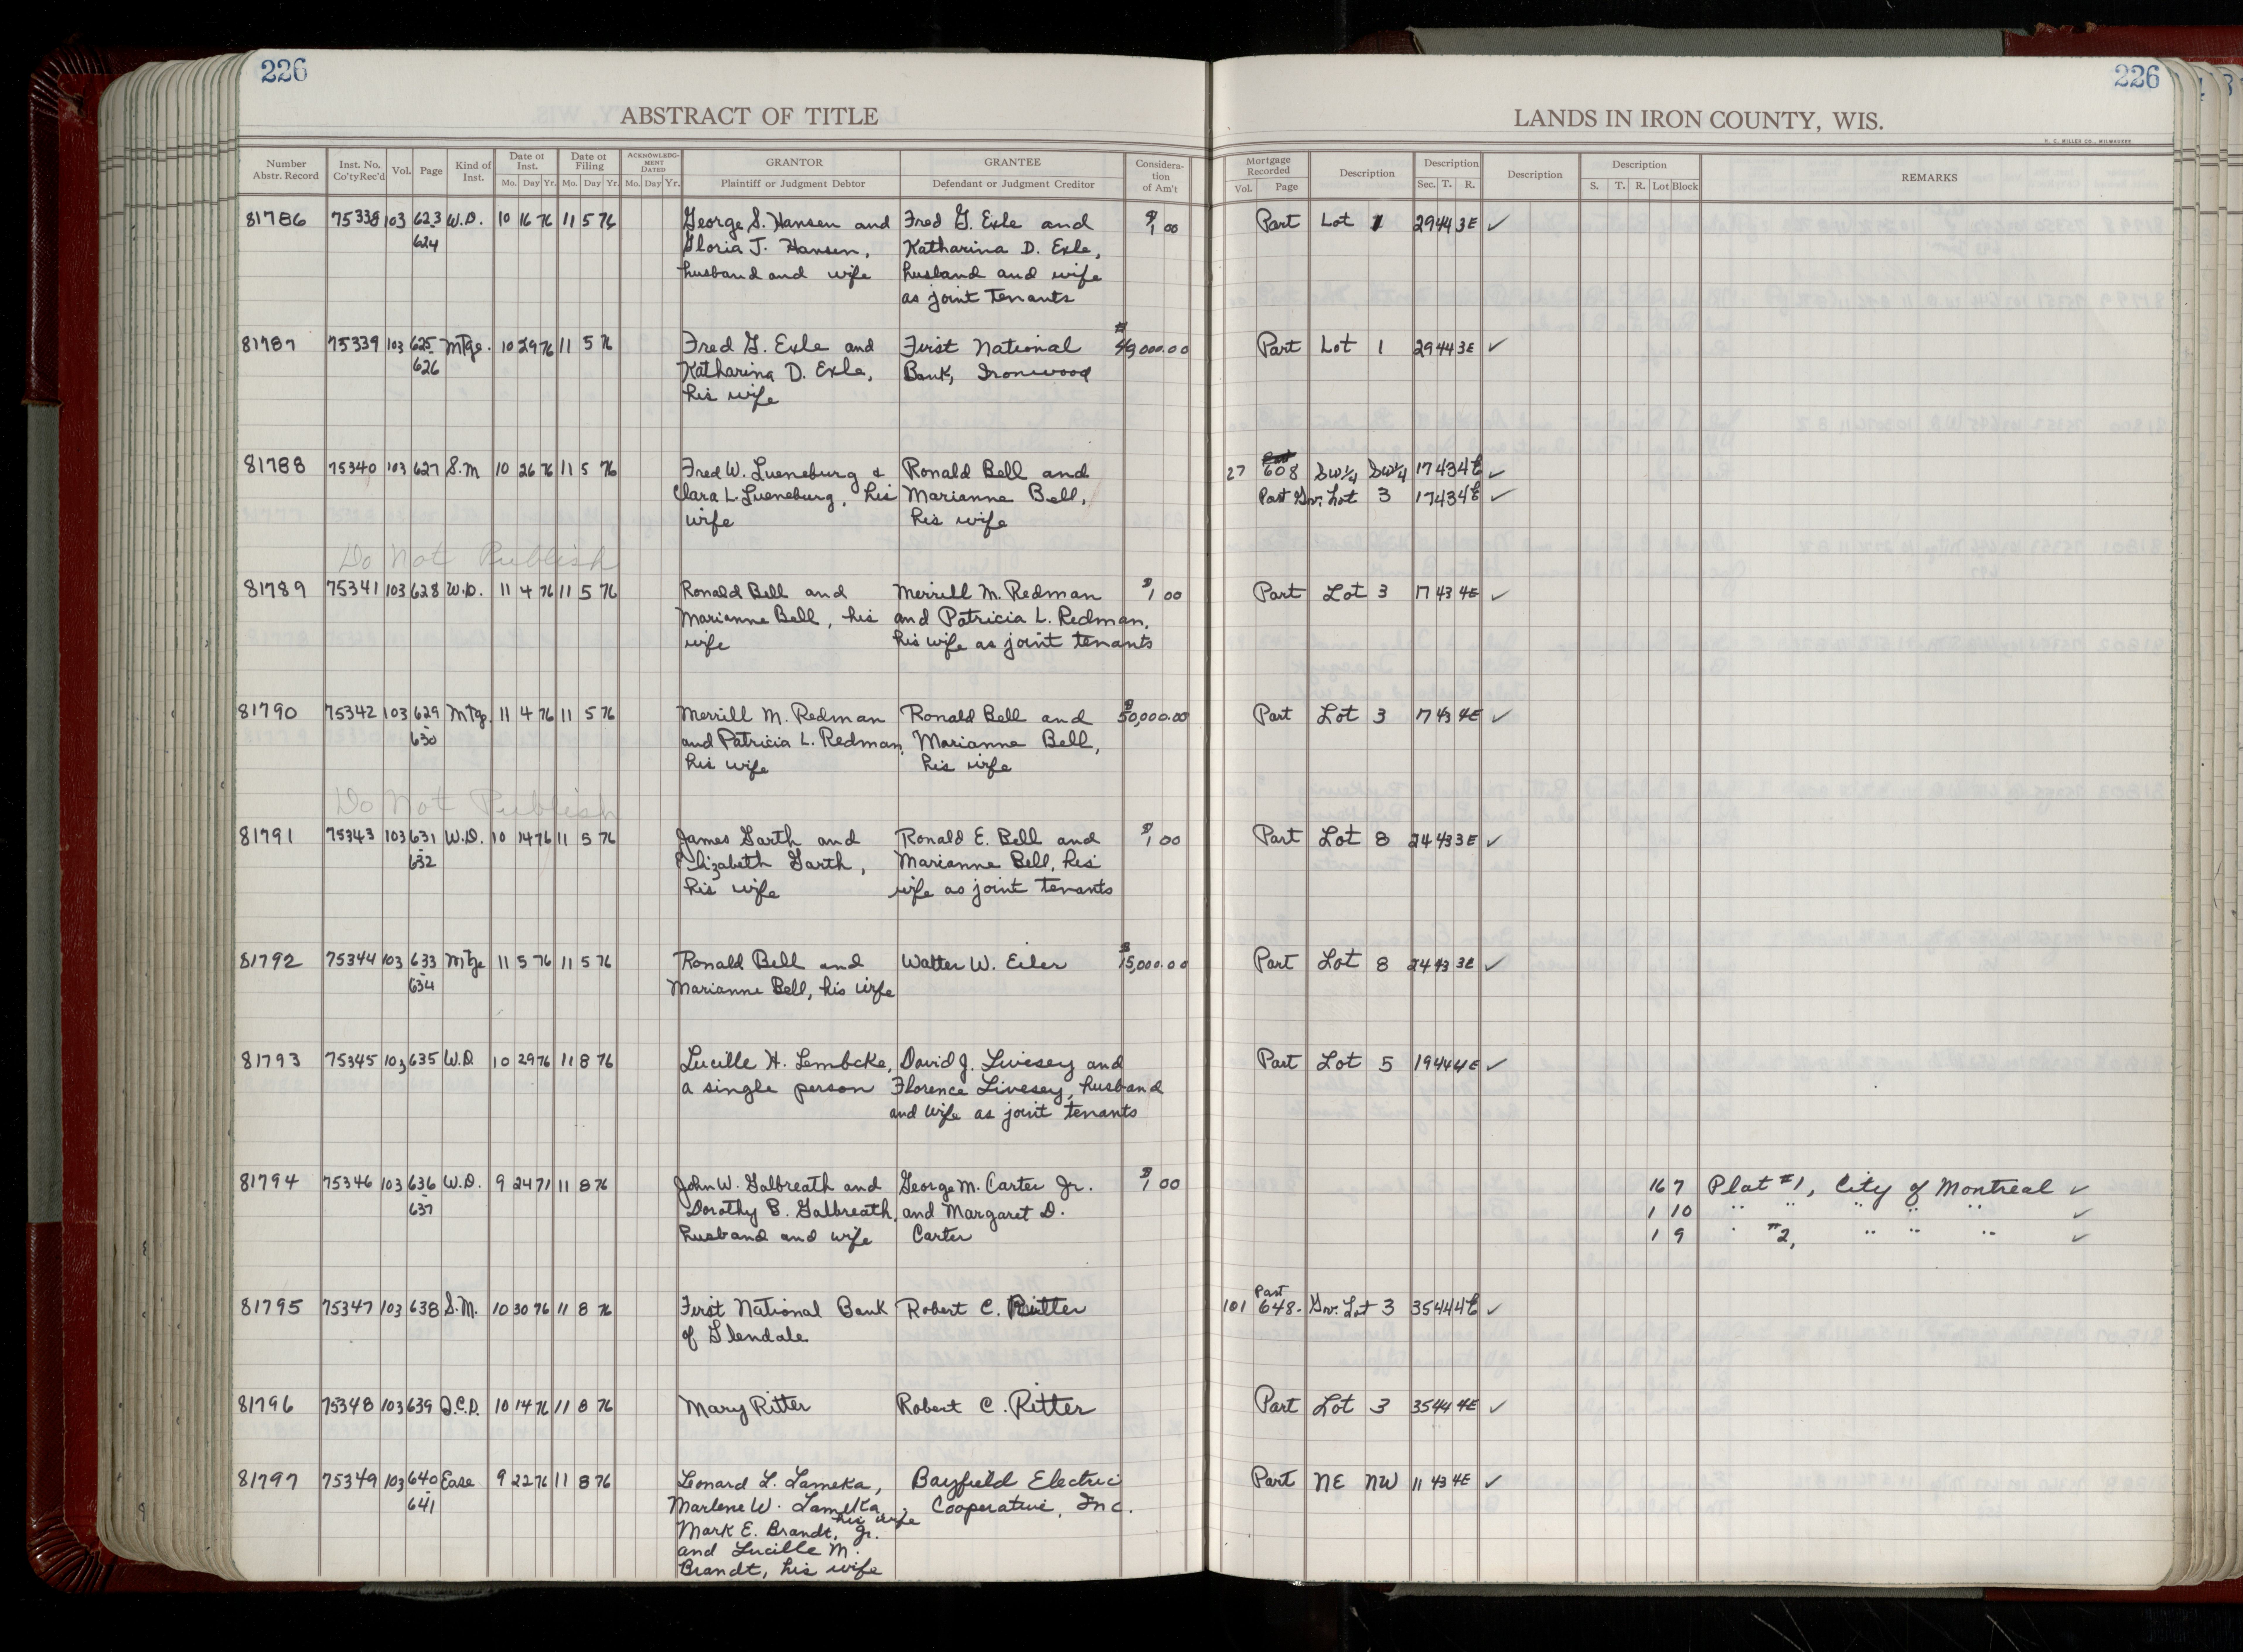 226
226
ABSTRACT OF TITLE
LANDS IN IRON COUNTY, WIS.
H. C. MILLER CO., MILWAUKEE
Number Abstr. Record Inst. No. Co'ty Rec'd Vol. Page Kind of Inst. Date of Inst. Mo. Day Yr. Date of Filing Mo. Day Yr. ACKNOWLEDGMENT DATED Mo. Day Yr. GRANTOR Plaintiff or Judgment Debtor GRANTEE Defendant or Judgment Creditor Consideration of Am't Mortgage Recorded Vol. Page Description Description Sec. T. R. Description Description S. T. R. Lot Block REMARKS
81786 75338 103 623 W.D. 10 16 76 11 5 76 George S. Hansen and Fred G. Exle and $1 00 Part Lot 1 29 44 3E ✓
- 624 Gloria J. Hansen, Katharina D. Exle,
husband and wife husband and wife
as joint tenants
81787 75339 103 625 Mtge. 10 29 76 11 5 76 Fred G. Exle and First National $49000.00 Part Lot 1 29 44 3E ✓
- 626 Katharina D. Exle, Bank, Ironwood
his wife
81788 75340 103 627 S.M 10 26 76 11 5 76 Fred W. Lueneburg & Ronald Bell and 27 608 SW¼ SW¼ 17 43 4E ✓
Clara L. Lueneburg, his Marianne Bell, Part Gov. Lot 3 17 43 4E ✓
wife his wife
Do Not Publish
81789 75341 103 628 W.D. 11 4 76 11 5 76 Ronald Bell and Merrill M. Redman $1 00 Part Lot 3 17 43 4E ✓
Marianne Bell, his and Patricia L. Redman,
wife his wife as joint tenants
81790 75342 103 629 Mtge. 11 4 76 11 5 76 Merrill M. Redman Ronald Bell and $50,000.00 Part Lot 3 17 43 4E ✓
- 630 and Patricia L. Redman, Marianne Bell,
his wife his wife
Do Not Publish
81791 75343 103 631 W.D. 10 14 76 11 5 76 James Garth and Ronald E. Bell and $1 00 Part Lot 8 24 43 3E ✓
- 632 Elizabeth Garth, Marianne Bell, his
his wife wife as joint tenants
81792 75344 103 633 Mtge 11 5 76 11 5 76 Ronald Bell and Walter W. Eiler $15,000.00 Part Lot 8 24 43 3E ✓
- 634 Marianne Bell, his wife
81793 75345 103 635 W.D. 10 29 76 11 8 76 Lucille H. Lembcke, David J. Livesey and Part Lot 5 19 44 4E ✓
a single person Florence Livesey, husband
and wife as joint tenants
81794 75346 103 636 W.D. 9 24 71 11 8 76 John W. Galbreath and George M. Carter Jr. $1 00 16 7 Plat #1, City of Montreal ✓
- 637 Dorothy B. Galbreath, and Margaret D. 1 10 " " " " " ✓
husband and wife Carter 1 9 " #2, " " " ✓
81795 75347 103 638 S.M. 10 30 76 11 8 76 First National Bank Robert C. Ritter 101 648- Part Gov. Lot 3 35 44 4E ✓
of Glendale
81796 75348 103 639 Q.C.D. 10 14 76 11 8 76 Mary Ritter Robert C. Ritter Part Lot 3 35 44 4E ✓
81797 75349 103 640 Ease 9 22 76 11 8 76 Leonard L. Lameka, Bayfield Electric Part NE NW 11 43 4E ✓
- 641 Marlene W. Lameka, his wife, Cooperative, Inc.
Mark E. Brandt, Jr.
and Lucille M.
Brandt, his wife